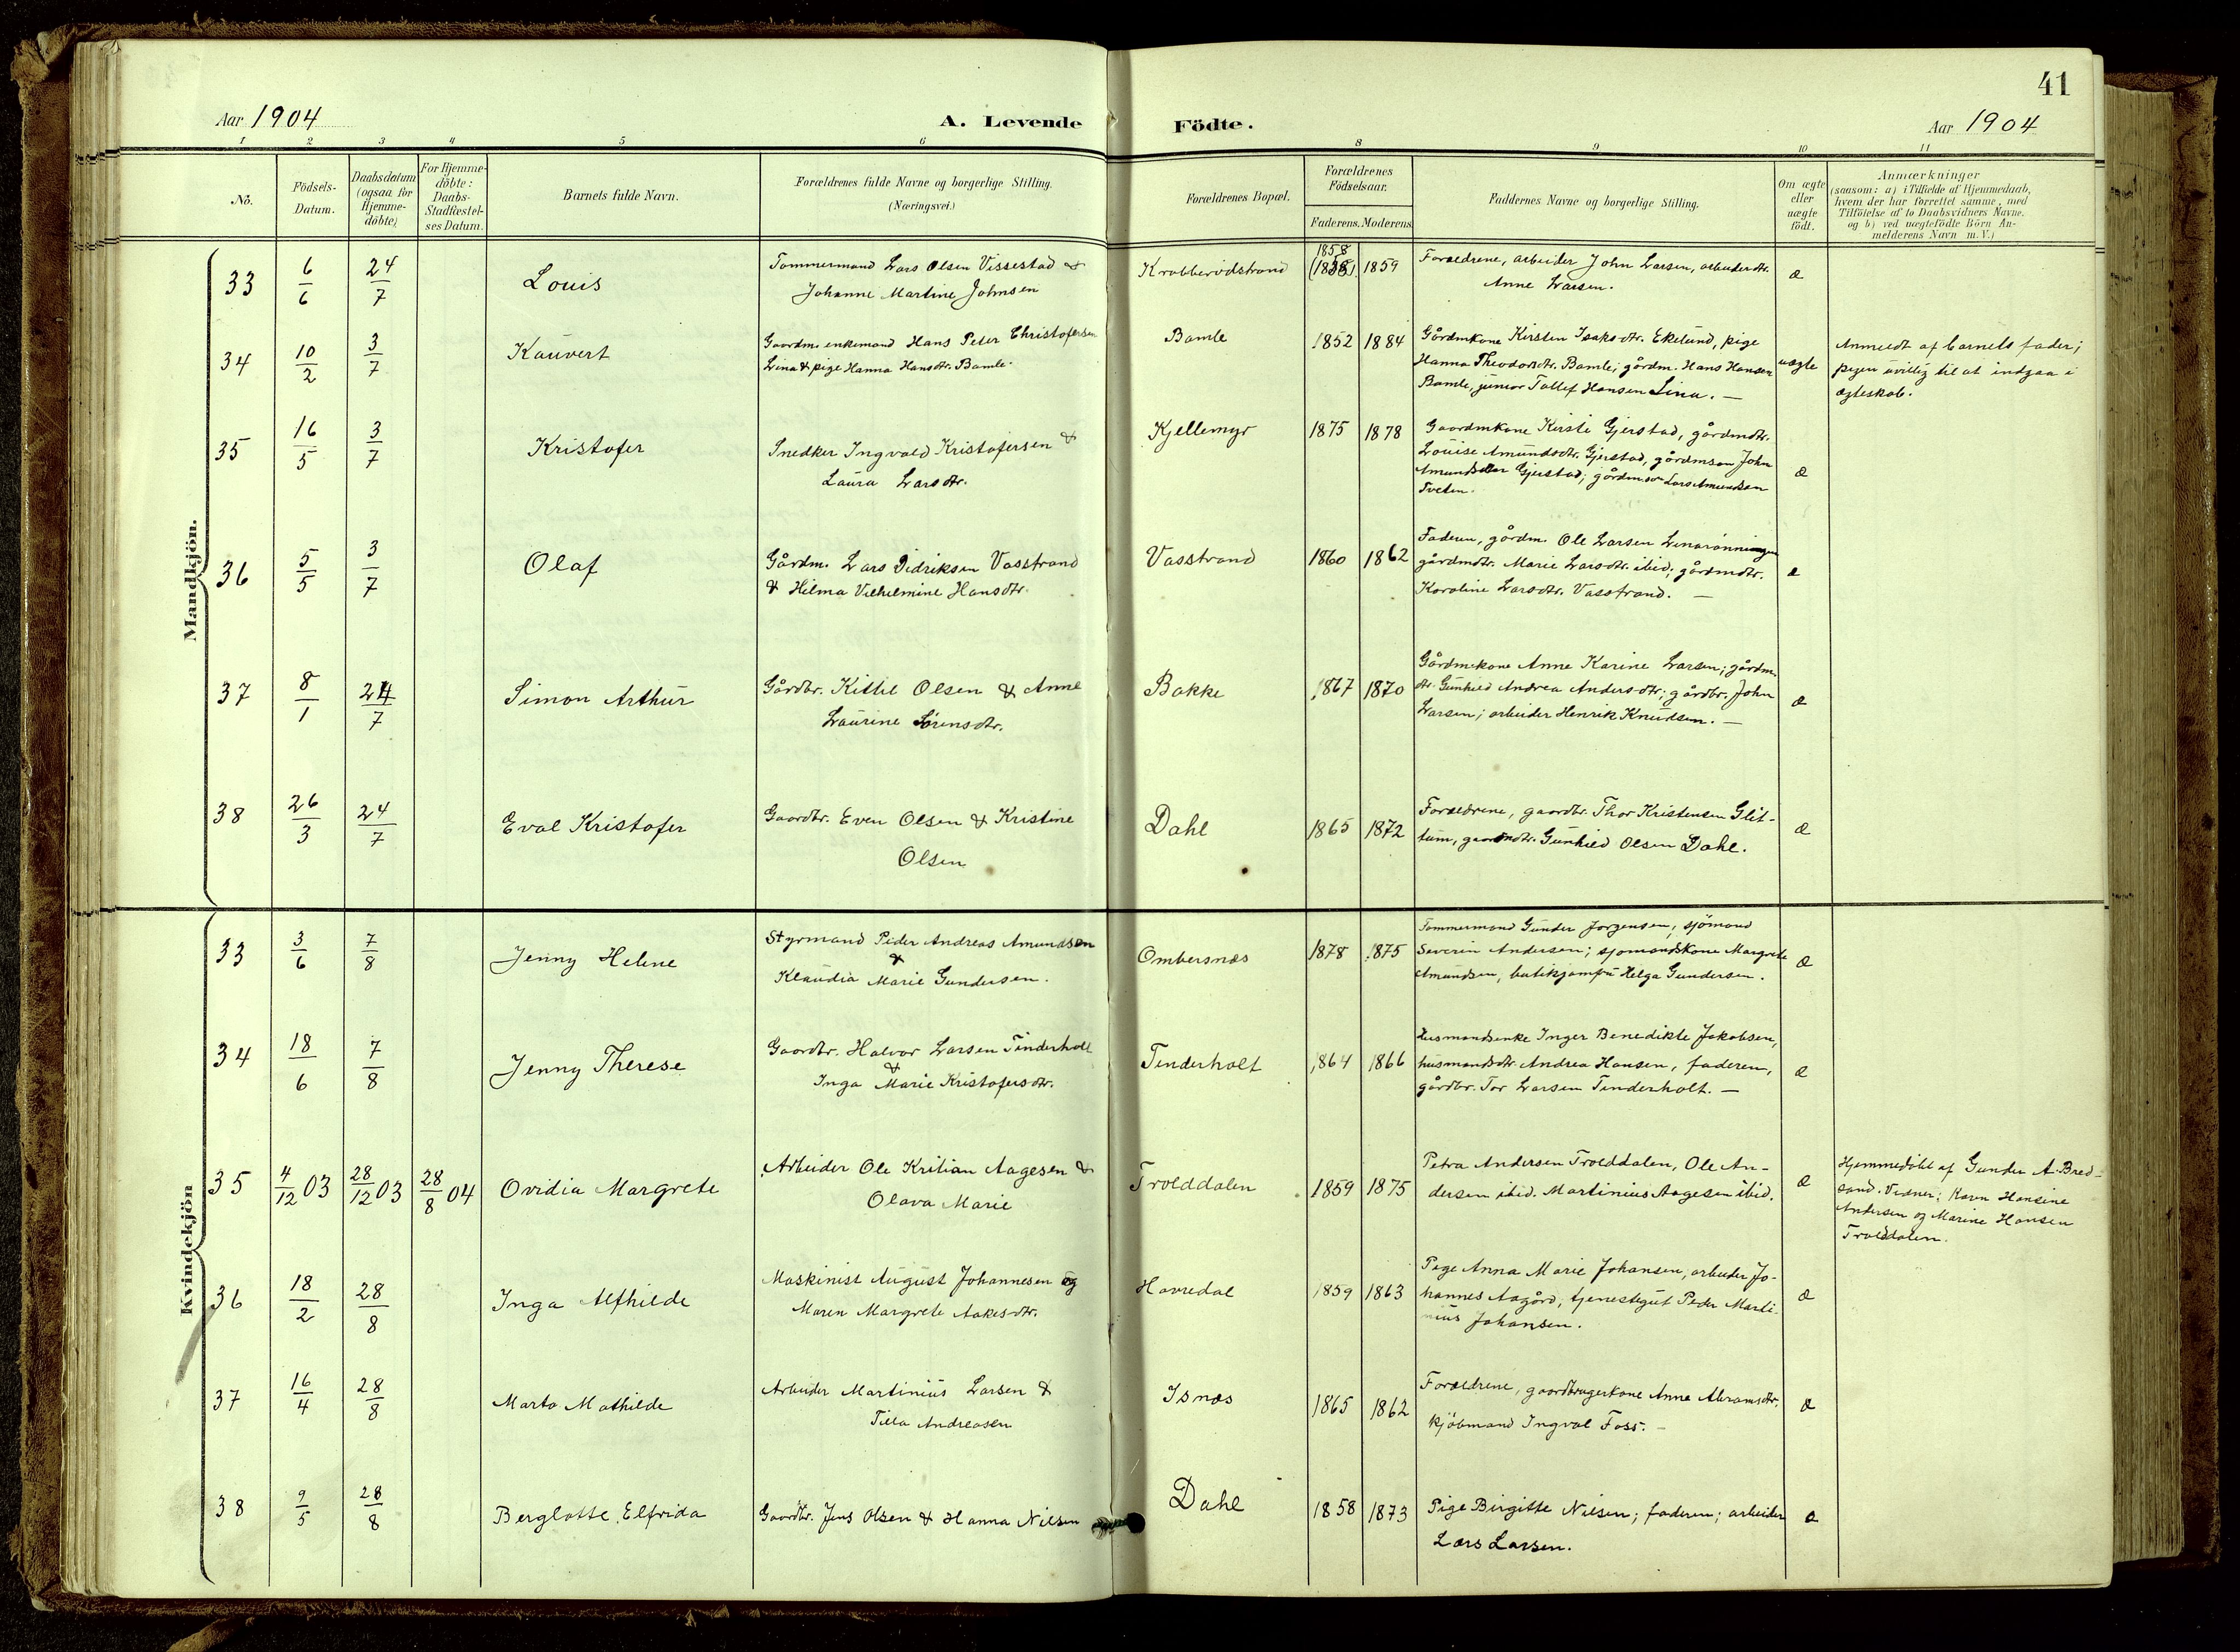 41
Aar 1904
A. Levende Födte.
Aar 1904
1 2 3 4 5 6 8 9 10 11
No.
Födsels-Datum.
Daabsdatum (ogsaa for Hjemme-döbte)
For Hjemme-döbte: Daabs-Stadfæstel-ses Datum.
Barnets fulde Navn.
Forældrenes fulde Navne og borgerlige Stilling.
(Næringsvei.)
Forældrenes Bopæl.
Forældrenes Födselsaar.
Faderens. Moderens
Faddernes Navne og borgerlige Stilling.
Om ægte eller uægte födt.
Anmærkninger
(saasom: a) i Tilfælde af Hjemmedaab,
hvem der har forrettet samme, med
Tilföielse af to Daabsvidners Navne.
og b) ved uægtefödte Börn An-
melderens Navn m. V.)
Mandkjön.
33 6/6 24/7 Louis
Tømmermand Lars Olsen Vissestad &
Johanne Martine Johnsen
Krabberødstrand
1858
1859
Forældrene, arbeider John Larsen, arbeiderdtr.
Anne Larsen.
æ
34 10/2 3/7 Kauvert
Gaardm. enkemand Hans Peter Christofersen
Lina & pige Hanna Hansdtr. Bamle.
Bamle
1852 1884
Gårdmkone Kirsten Isaksdtr. Ekelund, pige
Hanna Theodorsdtr. Bamle; gårdm. Hans Hansen
Bamle, junior Tollef Hansen Lina. —
uægte
Anmeldt af barnets fader;
pigen uvillig til at indgaa i
ægteskab.
35 16/5 3/7 Kristofer
Snedker Ingvald Kristofersen &
Laura Larsdtr.
Kjellemyr
1875 1878
Gaardmkone Kirsti Gjerstad, gårdmdtr.
Louise Amundsdtr. Gjerstad, gårdmsøn John
Amundsen Gjerstad; gårdm.søn Lars Amundsen
Tveten.
æ
36 5/5 3/7 Olaf
Gårdm. Lars Didriksen Vasstrand
& Hilma Vilhelmine Hansdtr.
Vasstrand
1860 1862
Faderen, gårdm. Ole Larsen
gårdmdtr. Marie Larsdtr. ibid; gårdmdtr.
Karoline Larsdtr. Vasstrand. —
æ
37 8/1 24/7 Simon Arthur
Gårdbr. Kittil Olsen & Anne
Laurine Sörensdtr.
Bakke
1867 1870
Gårdmkone Anne Karine Larsen; gårdm.
dtr. Gunhild Andrea Andersdtr; gårdbr. John
Larsen; arbeider Henrik Knudsen. —
æ
38 26/3 24/7 Eval Kristofer
Gaardbr. Even Olsen & Kristine
Olsen
Dahl
1865 1872
Forældrene, gaardbr. Thor Kristensen Glit-
tum, gaardmdtr. Gunhild Olsen Dahl.
æ
Kvindekjön
33 3/6 7/8 Jenny Helene
Styrmand Peder Andreas Amundsen
&
Klaudia Marie Gundersen.
Ombersnæs
1878 1875
Tømmermand Gunder Jorgensen, sjömand
Severin Andersen; sjomandskone Margrete
Amundsen, butikjomfru Helga Gundersen.
æ
34 18/6 7/8 Jenny Therese
Gaardbr. Halvor Larsen Tinderholt
&
Inga Marie Kristofersdtr.
Tinderholt
1864 1866
Husmandsenke Inger Benedikte Jakobsen,
husmandsdtr. Andrea Hansen, faderen,
gårdbr. Tor Larsen Tinderholt. —
æ
35 4/12 03 28/12 03 28/8 04 Ovidia Margrete
Arbeider Ole Kritian Aagesen &
Olava Marie
Trolddalen
1859 1875
Petra Andersen Trolddalen, Ole An-
dersen ibid. Martinius Aagesen ibid.
æ
Hjemmedöbt af Gunder A. Bred-
sand. Vidner: Karn Hansine
Andersen og Marine Hansen
Trolddalen.
36 18/2 28/8 Inga Alfhilde
Maskinist August Johannesen og
Maren Margrete Aakesdtr.
Havredal
1859 1863
Pige Anna Marie Johansen, arbeider Jo-
hannes Aagård, tjenestegut Peder Marti-
nius Johansen.
æ
37 16/4 28/8 Marta Mathilde
Arbeider Martinius Larsen &
Tilla Andreasen
Isnæs
1865 1862
Forældrene, gaardbrugerkone Anne Abramsdtr,
kjöbmand Ingval Foss. —
æ
38 9/5 28/8 Berglotte Elfrida
Gaardbr. Jens Olsen & Hanna Nilsen
Dahl
1858 1873
Pige Birgitte Nilsen; faderen; arbeider
Lars Larsen.
æ